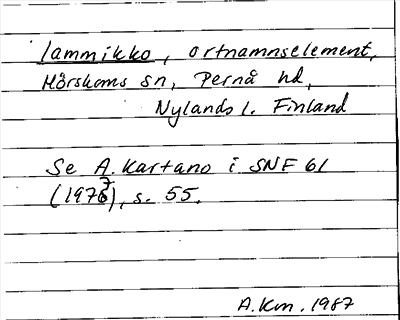 lammikko, ortnamnselement,
Mörskoms sn, Pernå hd,
Nylands l. Finland
Se A. Kartano i SNF 61
(1977), s. 55.
A.Km. 1987